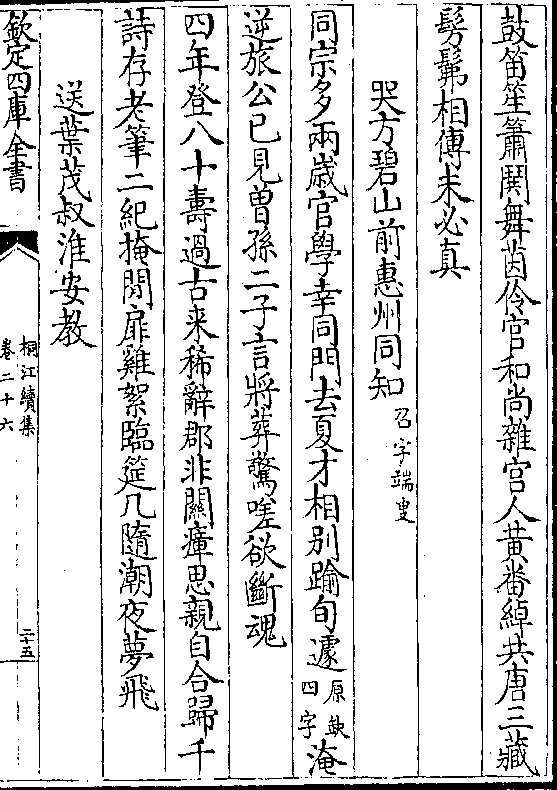 鼓笛笙簫鬭舞茵伶官和尚雜宫人黄畨綽共唐三藏
髣髴相傳未必真
哭方碧山前惠州同知召字端叟
同宗多兩歲官學幸同門去夏才相别踰旬遽原缺四字淹
逆旅公已見曽孫二子言將葬驚嗟欲斷魂
四年登八十壽過古来稀辭郡非關瘴思親自合歸千
詩存老筆二紀掩閒扉雞絮臨筵几隨潮夜夢飛
送葉茂叔淮安教
欽定四庫全書
桐江續集
卷二十六
二十五